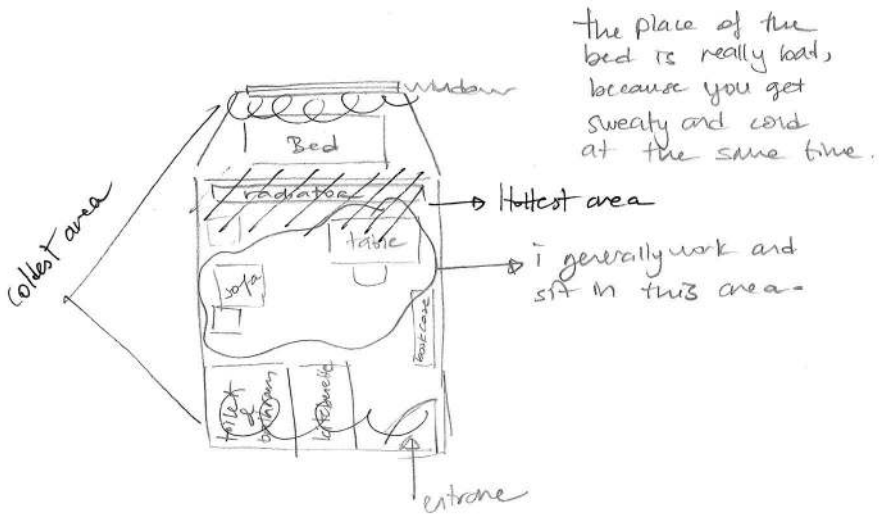 the place of the
bed is really bad,
because you get
sweaty and cold
at the same time.
window
Bed
radiator
Hottest area
table
i generally work and
sit in this area.
Coldest area
sofa
bookcase
toilet
&
bathroom
kitchenette
entrane